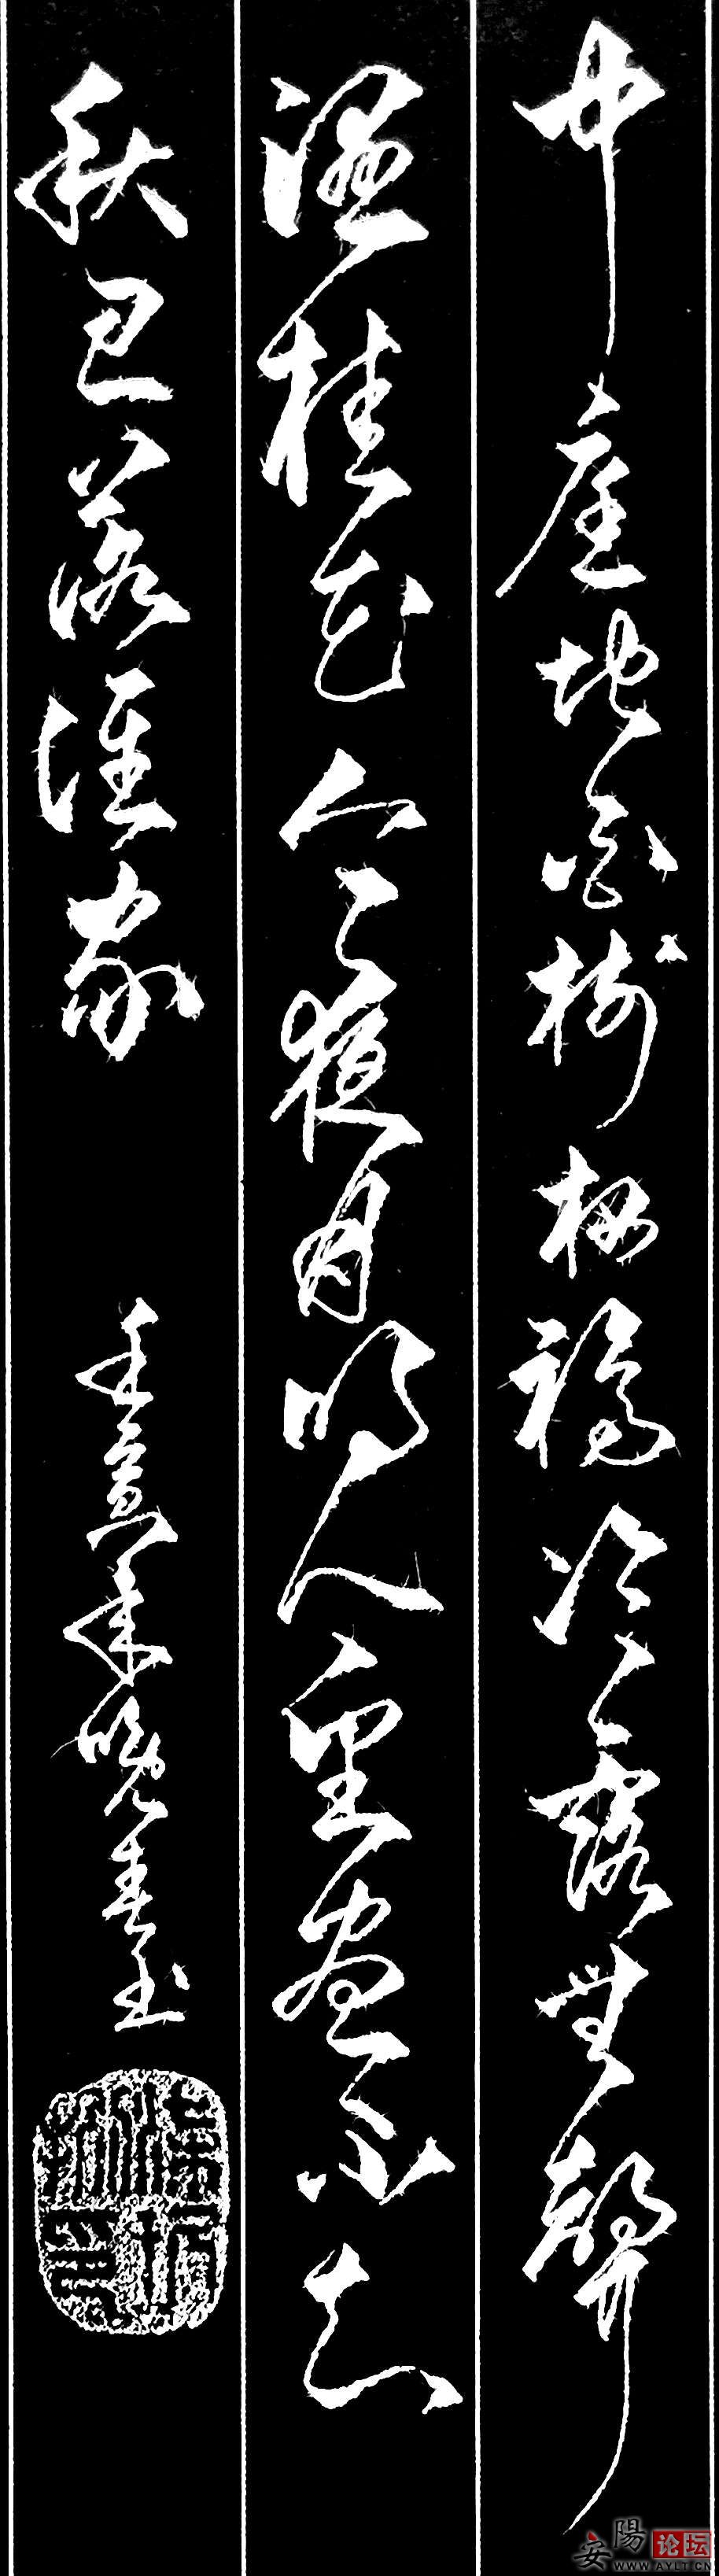 中庭地白樹栖鴉冷露無聲
濕桂花今夜月明人望盡不知
秋思落誰家
壬寅年晚春玉
安陽论坛
WWW.AYLT.CN